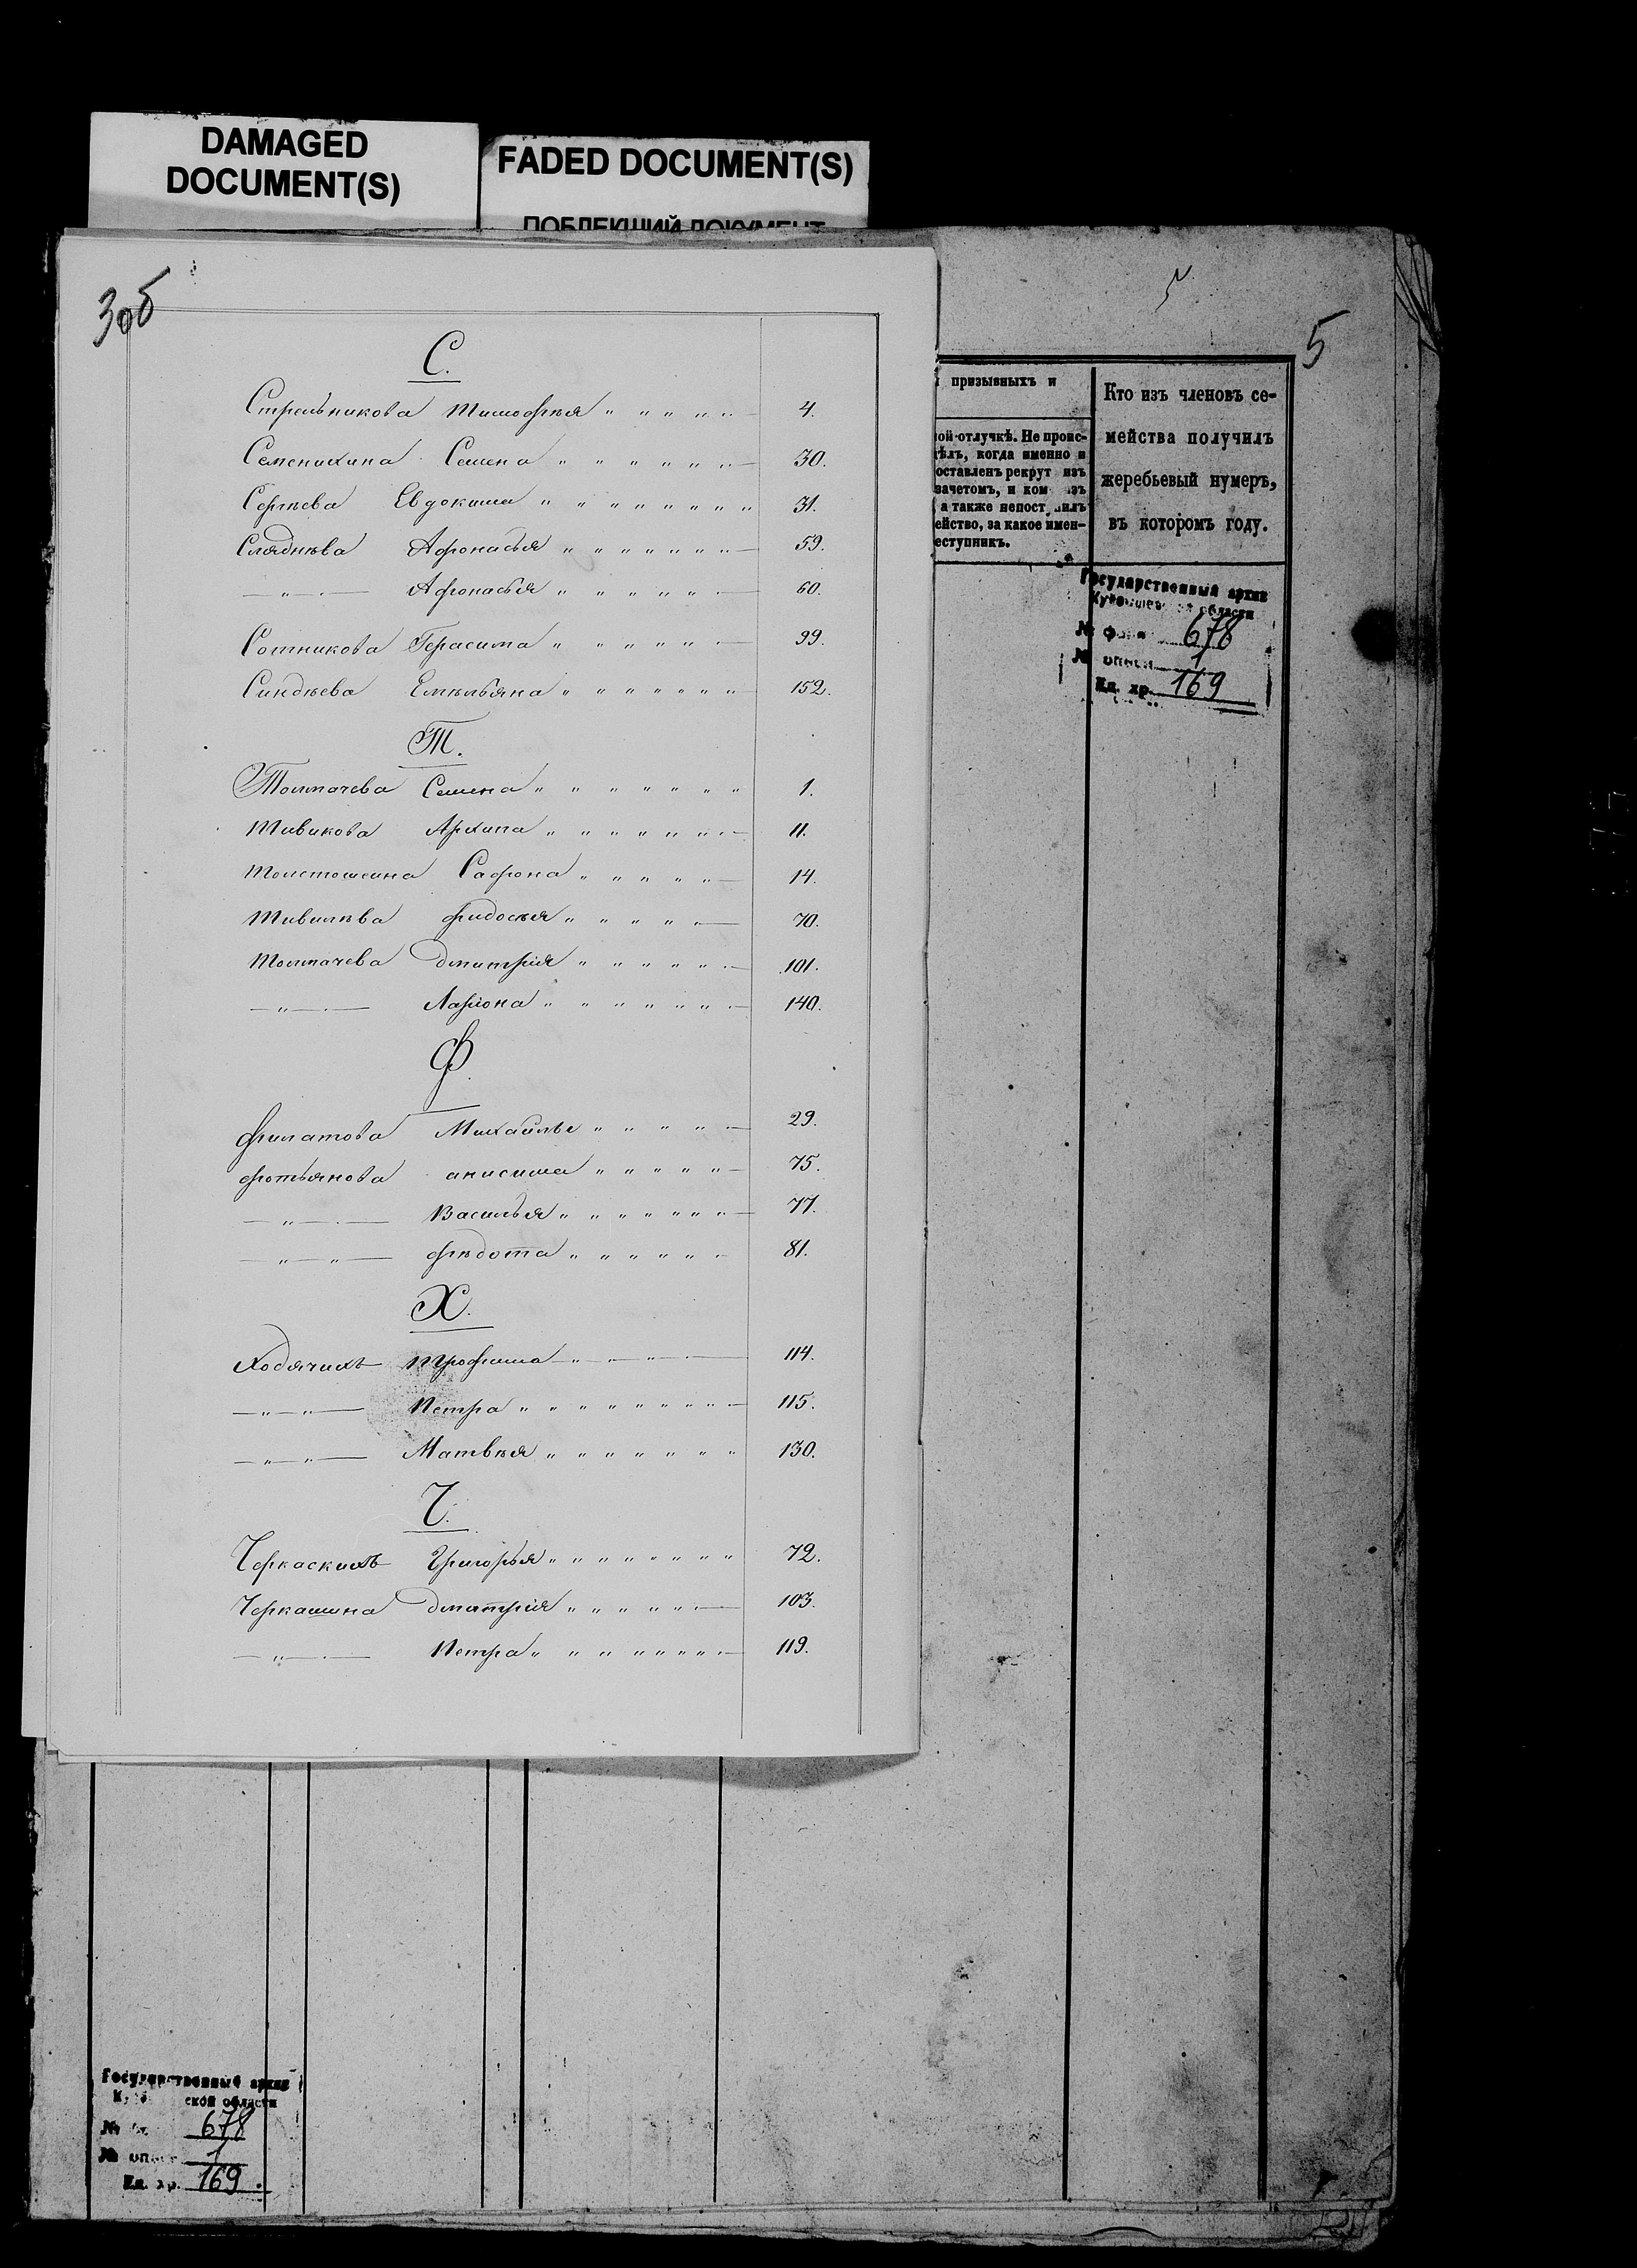 DAMAGED
DOCUMENT(S)
FADED DOCUMENT(S)
ПОБЛЕКШИЙ ДОКУМЕНТ
3об
С.
Стрельникова Тимофѣя " " " " " — 4.
Семенихина Семена " " " " " " — 30.
Сергѣева Евдокима " " " " " " " 31.
Сляднѣва Афонасья " " " " " " — 59.
— " — Афонасья " " " " " — 60.
Сотникова Герасима " " " " " — 99.
Синдѣева Емѣльяна " " " " " " — 152.
Т.
Толмачева Семена " " " " " " " 1.
Тивикова Архипа " " " " " " — 11.
Толстошеина Сафона " " " " " — 14.
Тивилѣва Фидосѣя " " " " " — 70.
Толмачева Дмитрія " " " " " — 101.
— " — Ларіона " " " " " " — 140.
Ф.
Филатова Михайлы " " " " — 29.
Фотьянова анисима " " " " " — 75.
— " — Василья " " " " " " — 77.
— " — " — Фѣдота " " " " " — 81.
Х.
Ходячихъ Трофима — " — " — 114.
— " — " — Петра " " " " " " " " — 115.
— " — " — Матвѣя " " " " " " " 130.
Ч.
Черкаскихъ Григорья " " " " " " " " 72.
Черкашина Дмитрія " " " " " — 103.
— " — Петра " " " " " " " — 119.
5
призывныхъ и
ой-отлучкѣ. Не проис-
ѣлъ, когда именно и
оставленъ рекрут изъ
зачетомъ, и ком изъ
а также непост
ейство, за какое имен-
еступникъ.
Кто изъ членовъ се-
мейства получилъ
жеребьевый нумеръ,
въ которомъ году.
Государственный архив
области
№ фон 678
№ описи 1
Ед. хр. 169
Государственный архив
ской области
№ 678
№ опис 1
Ед. хр. 169